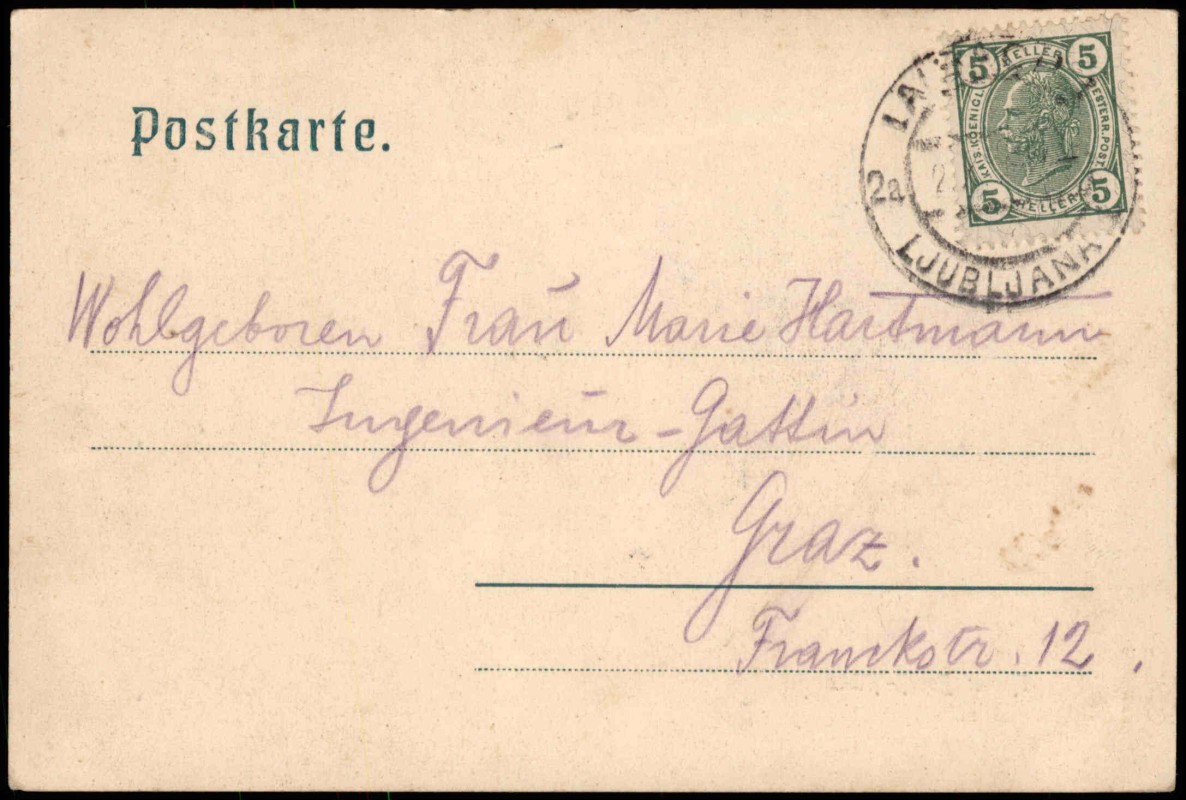 Postkarte.
5 HELLER 5
KAIS. KOENIGL.
OESTERR. POST.
5 HELLER 5
2a
LJUBLJANA
Wohlgeboren Frau Marie Hartmann
Ingenieur-Gattin
Graz.
Franckstr. 12.